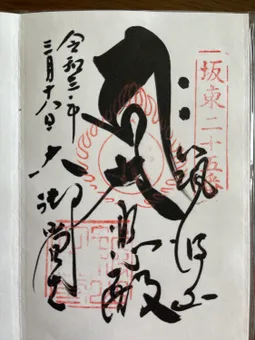 坂東二十五番
筑波山
大悲殿
大御堂
令和三年
三月十八日